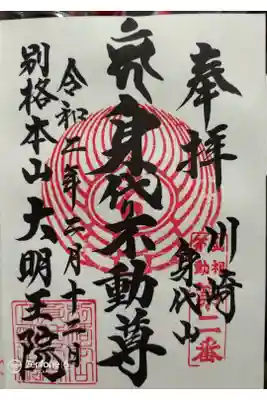 奉拝
川崎
身代山
不動
第二番
身代り不動尊
令和二年二月十二日
別格本山 大明王院